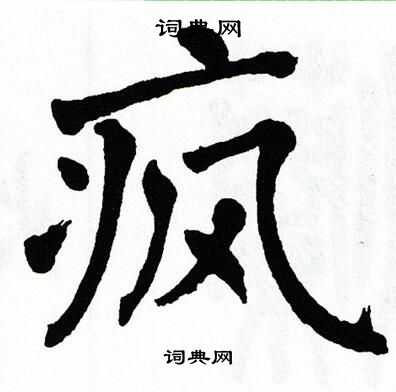 词典网
疯
词典网